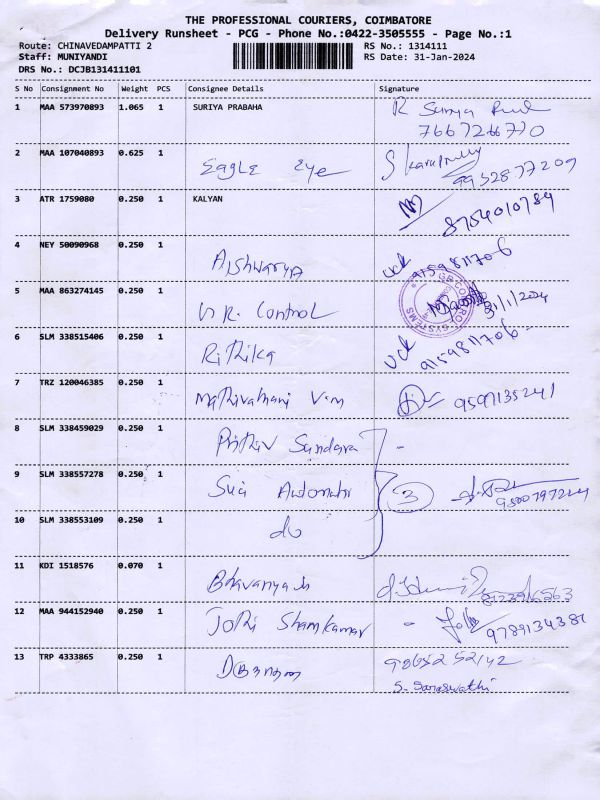 THE PROFESSIONAL COURIERS, COIMBATORE
Delivery Runsheet - PCG - Phone No.:0422-3505555 - Page No.:1
Route: CHINAVEDAMPATTI 2 RS No.: 1314111
Staff: MUNIYANDI RS Date: 31-Jan-2024
DRS No.: DCJB131411101
S No Consignment No Weight PCS Consignee Details Signature
1 MAA 573970893 1.065 1 SURIYA PRABAHA R Surya
7667266770
2 MAA 107040893 0.625 1 Eagle Eye
9952877209
3 ATR 1759080 0.250 1 KALYAN 8754010784
4 NEY 50090968 0.250 1 Aishwarya uck 9159811706
5 MAA 863274145 0.250 1 G.R. Control 31/1/2024
6 SLM 338515406 0.250 1 Rithika uck 9159811706
7 TRZ 120046385 0.250 1 Mathivathani V.M 9597135241
8 SLM 338459029 0.250 1 Prithiv Sundara -
9 SLM 338557278 0.250 1 Sui Automati 3
10 SLM 338553109 0.250 1 do
11 KDI 1518576 0.070 1 Bhavanya
12 MAA 944152940 0.250 1 Jothi Shamkumar -
13 TRP 4333865 0.250 1
S. Saraswathi